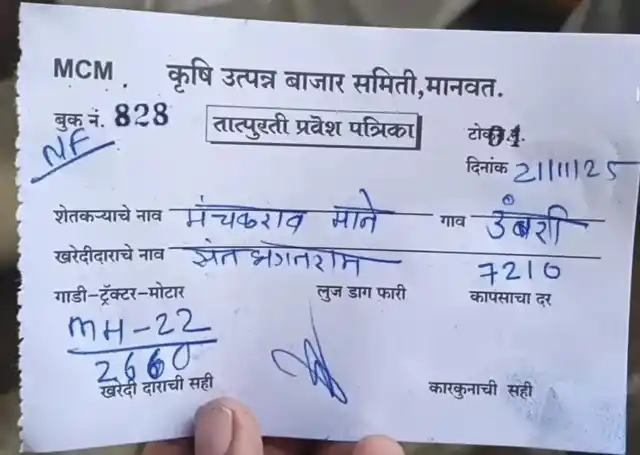 MCM. कृषि उत्पन्न बाजार समिती,मानवत.
बुक नं. 828 तात्पुरती प्रवेश पत्रिका टोकन 01
NF
दिनांक 21/11/25
शेतकऱ्याचे नाव मंचकराव माने गाव उंबरी
खरेदीदाराचे नाव संत भगतराम 7210
गाडी-ट्रॅक्टर-मोटार लुज डाग फारी कापसाचा दर
MH-22
2660
खरेदी दाराची सही कारकुनाची सही